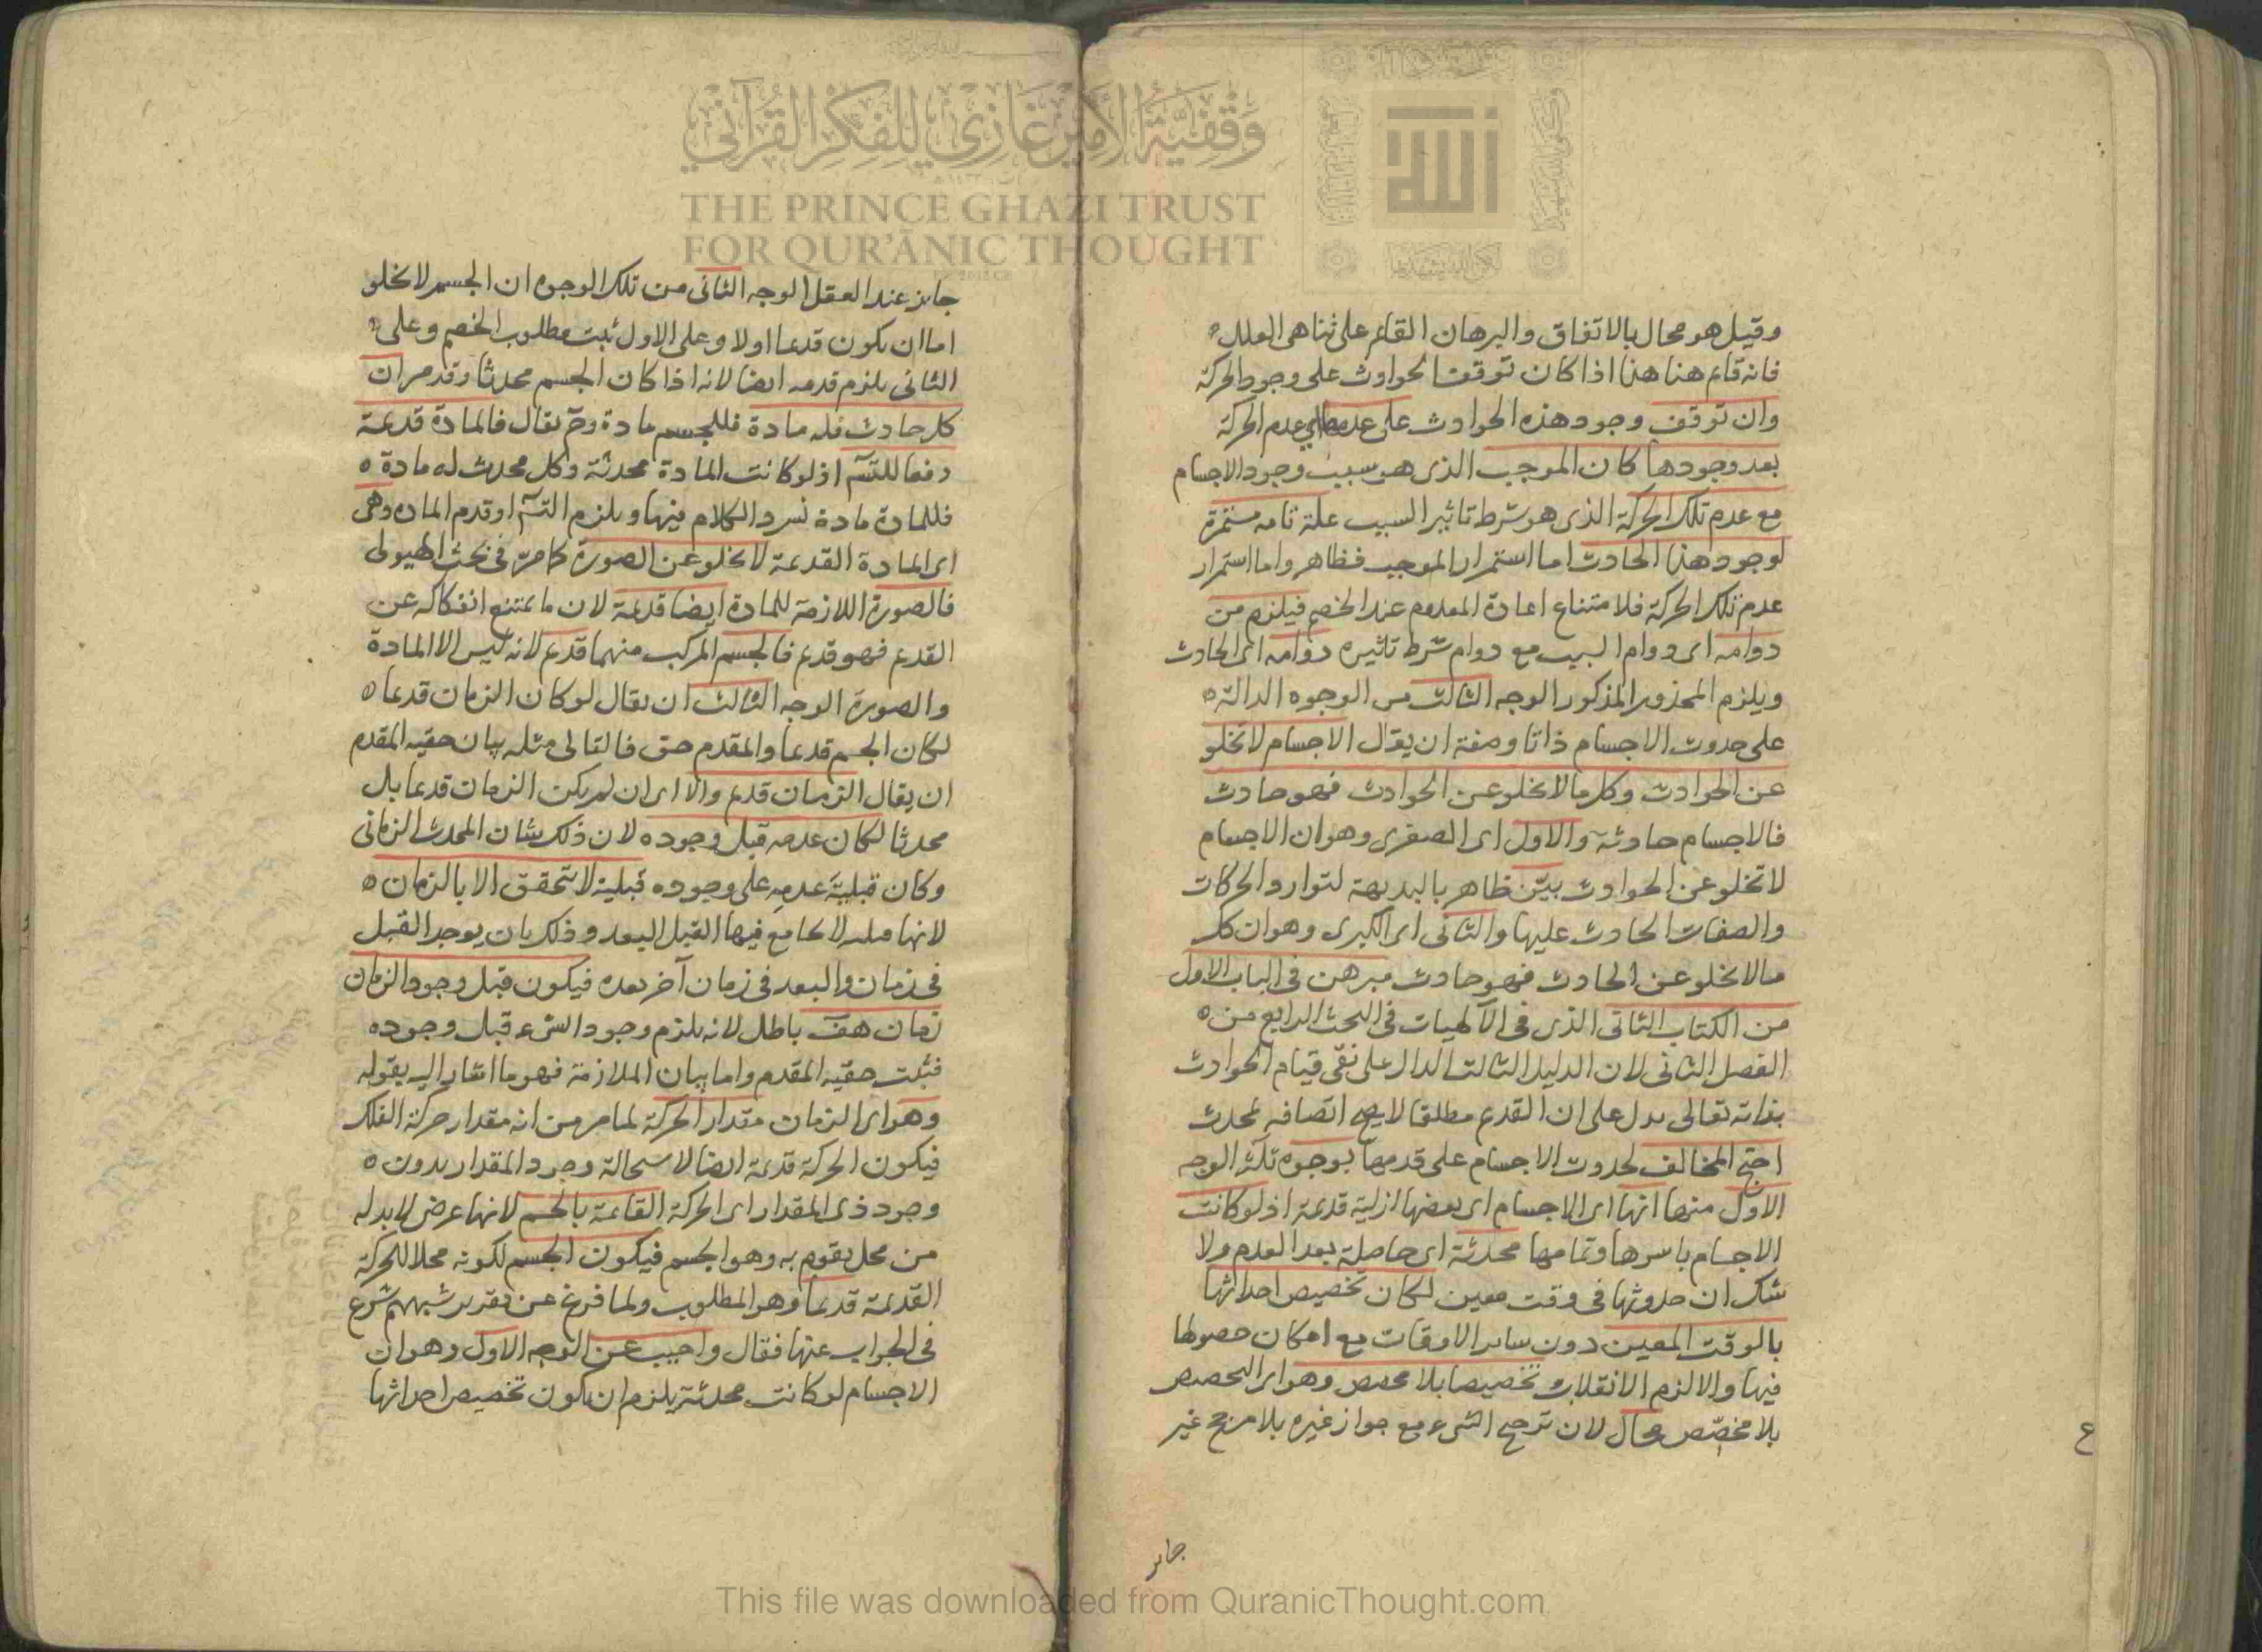 وقيل هو محال بالاتفاق والبرهان القائم على تناهي العلل
فانه قائم هنا هذا اذا كان توقف الحوادث على وجود الحركة
وان توقف وجود هذه الحوادث على عدمها اي عدم الحركة
بعد وجودها كان الموجب الذي هو سبب وجود الاجسام
مع عدم تلك الحركة الذي هو شرط تاثير السبب علة تامه مستمرة
لوجود هذا الحادث اما استمرار الموجب فظاهر واما استمرار
عدم تلك الحركة فلامتناع اعادة المعدوم عند الخصم فيلزم من
دوامه اي دوام السبب مع دوام شرط تاثيره دوامه اي الحادث
ويلزم المحذور المذكور الوجه الثالث من الوجوه الدالة
على حدوث الاجسام ذاتا وصفة ان يقال الاجسام لا تخلو
عن الحوادث وكل ما لا يخلو عن الحوادث فهو حادث
فالاجسام حادثة والاول اي الصغرى وهو ان الاجسام
لا تخلو عن الحوادث بيّن ظاهر بالبديهة لتوارد الحركات
والصفات الحادث عليها والثاني اي الكبرى وهو ان كل
ما لا يخلو عن الحادث فهو حادث مبرهن في الباب الاول
من الكتاب الثاني الذي في الآلهيات في البحث الرابع من
الفصل الثاني لان الدليل الثالث الدال على نفي قيام الحوادث
بذاته تعالى يدل على ان القديم مطلقا لا يصح اتصافه بمحدث
احتج المخالف لحدوث الاجسام على قدمها بوجوه ثلثة الوجه
الاول منها انها اي الاجسام اي بعضها ازلية قديمة اذ لو كانت
الاجسام باسرها وتمامها محدثة اي حاصلة بعد العدم ولا
شك ان حدوثها في وقت معين لكان تخصيص احداثها
بالوقت المعين دون ساير الاوقات مع امكان حصولها
فيها والا لزم الانقلاب تخصيصا بلا مخصص وهو اي التخصيص
بلا مخصّص محال لان ترجح الشيء مع جواز غيره بلا مرجح غير
جايز
جايز عند العقل الوجه الثاني من تلك الوجوه ان الجسم لا يخلو
اما ان يكون قديما اولا وعلى الاول ثبت مطلوب الخصم وعلى
الثاني يلزم قدمه ايضا لانه اذا كان الجسم محدثا وقد مر ان
كل حادث فله مادة فللجسم مادة وح يقال فالمادة قديمة
دفعا للتسّ اذ لو كانت المادة محدثة وكل محدث له مادة
فللمادة مادة نسرد الكلام فيها ويلزم التسّ او قدم الماده وهي
اي المادة القديمة لا تخلو عن الصورة كما مرّ في بحث الهيولى
فالصورة اللازمة للمادة ايضا قديمة لان ما يمتنع انفكاكه عن
القديم فهو قديم فالجسم المركب منهما قديم لانه ليس الا المادة
والصورة الوجه الثالث ان يقال لو كان الزمان قديما
لكان الجسم قديما والمقدم حق فالتالي مثله بيان حقيه المقدم
ان يقال الزمان قديم والا اي ان لم يكن الزمان قديما بل
محدثا لكان عدمه قبل وجوده لان ذلك شان المحدث الزماني
وكان قبليّة عدمه على وجوده قبلية لا تتحقق الا بالزمان
لانها قبليه لا يجامع فيها القبل البعد وذلك بان يوجد القبل
في زمان والبعد في زمان آخر بعده فيكون قبل وجود الزمان
زمان هف باطل لانه يلزم وجود الشيء قبل وجوده
فثبت حقيه المقدم واما بيان الملازمة فهو ما اشار اليه بقوله
وهو اي الزمان مقدار الحركة لما مر من انه مقدار حركة الفلك
فيكون الحركة قديمة ايضا لاستحالة وجود المقدار بدون
وجود ذي المقدار اي الحركة القائمة بالجسم لانها عرض لابد له
من محل يقوم به وهو الجسم فيكون الجسم لكونه محلا للحركة
القديمة قديما وهو المطلوب ولما فرغ عن تقرير شبههم شرع
في الجواب عنها فقال واجيب عن الوجه الاول وهو ان
الاجسام لو كانت محدثة يلزم ان يكون تخصيص احداثها
ع
وقفية الأمير غازي للفكر القرآني
THE PRINCE GHAZI TRUST
FOR QUR'ĀNIC THOUGHT
الله
This file was downloaded from QuranicThought.com